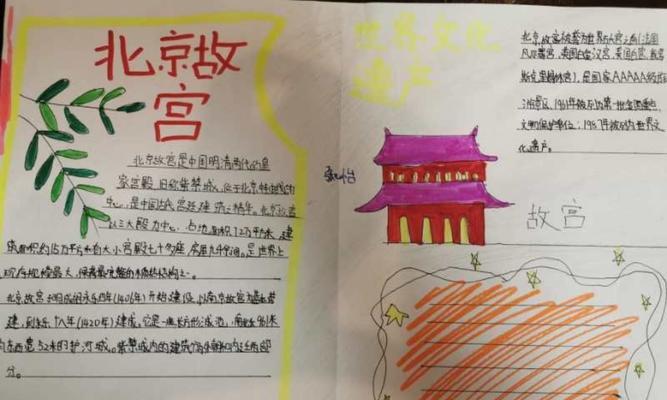 北京故
宫
北京故宫是中国明清两代的皇
家宫殿,旧称紫禁城,位于北京中轴线的
中心,是中国古代宫廷建筑之精华。北京故宫
以三大殿为中心,占地面积72万平方米,建
筑面积约15万平方米,有大小宫殿七十多座,房屋九千余间。是世界上
现存规模最大,保存最完整的木质结构
北京故宫 明成祖永乐四年(1406年)开始建设,以南京故宫为蓝本营
建,到永乐十八年(1420年)建成,它是一座长方形城池,南北长961米
东西宽 米 护河城。紫禁城内的建筑 外朝和内廷两部
分。
世界文化
遗产
北京故宫被誉为世界五大宫之首(法国
凡尔赛宫,英国白金汉宫,美国白宫,俄罗
斯克里姆林宫),是国家AAAAA级旅
游景区,1961年被列为第一批全国重点
文物保护单位;1987年被列为世界文
化遗产。
故宫